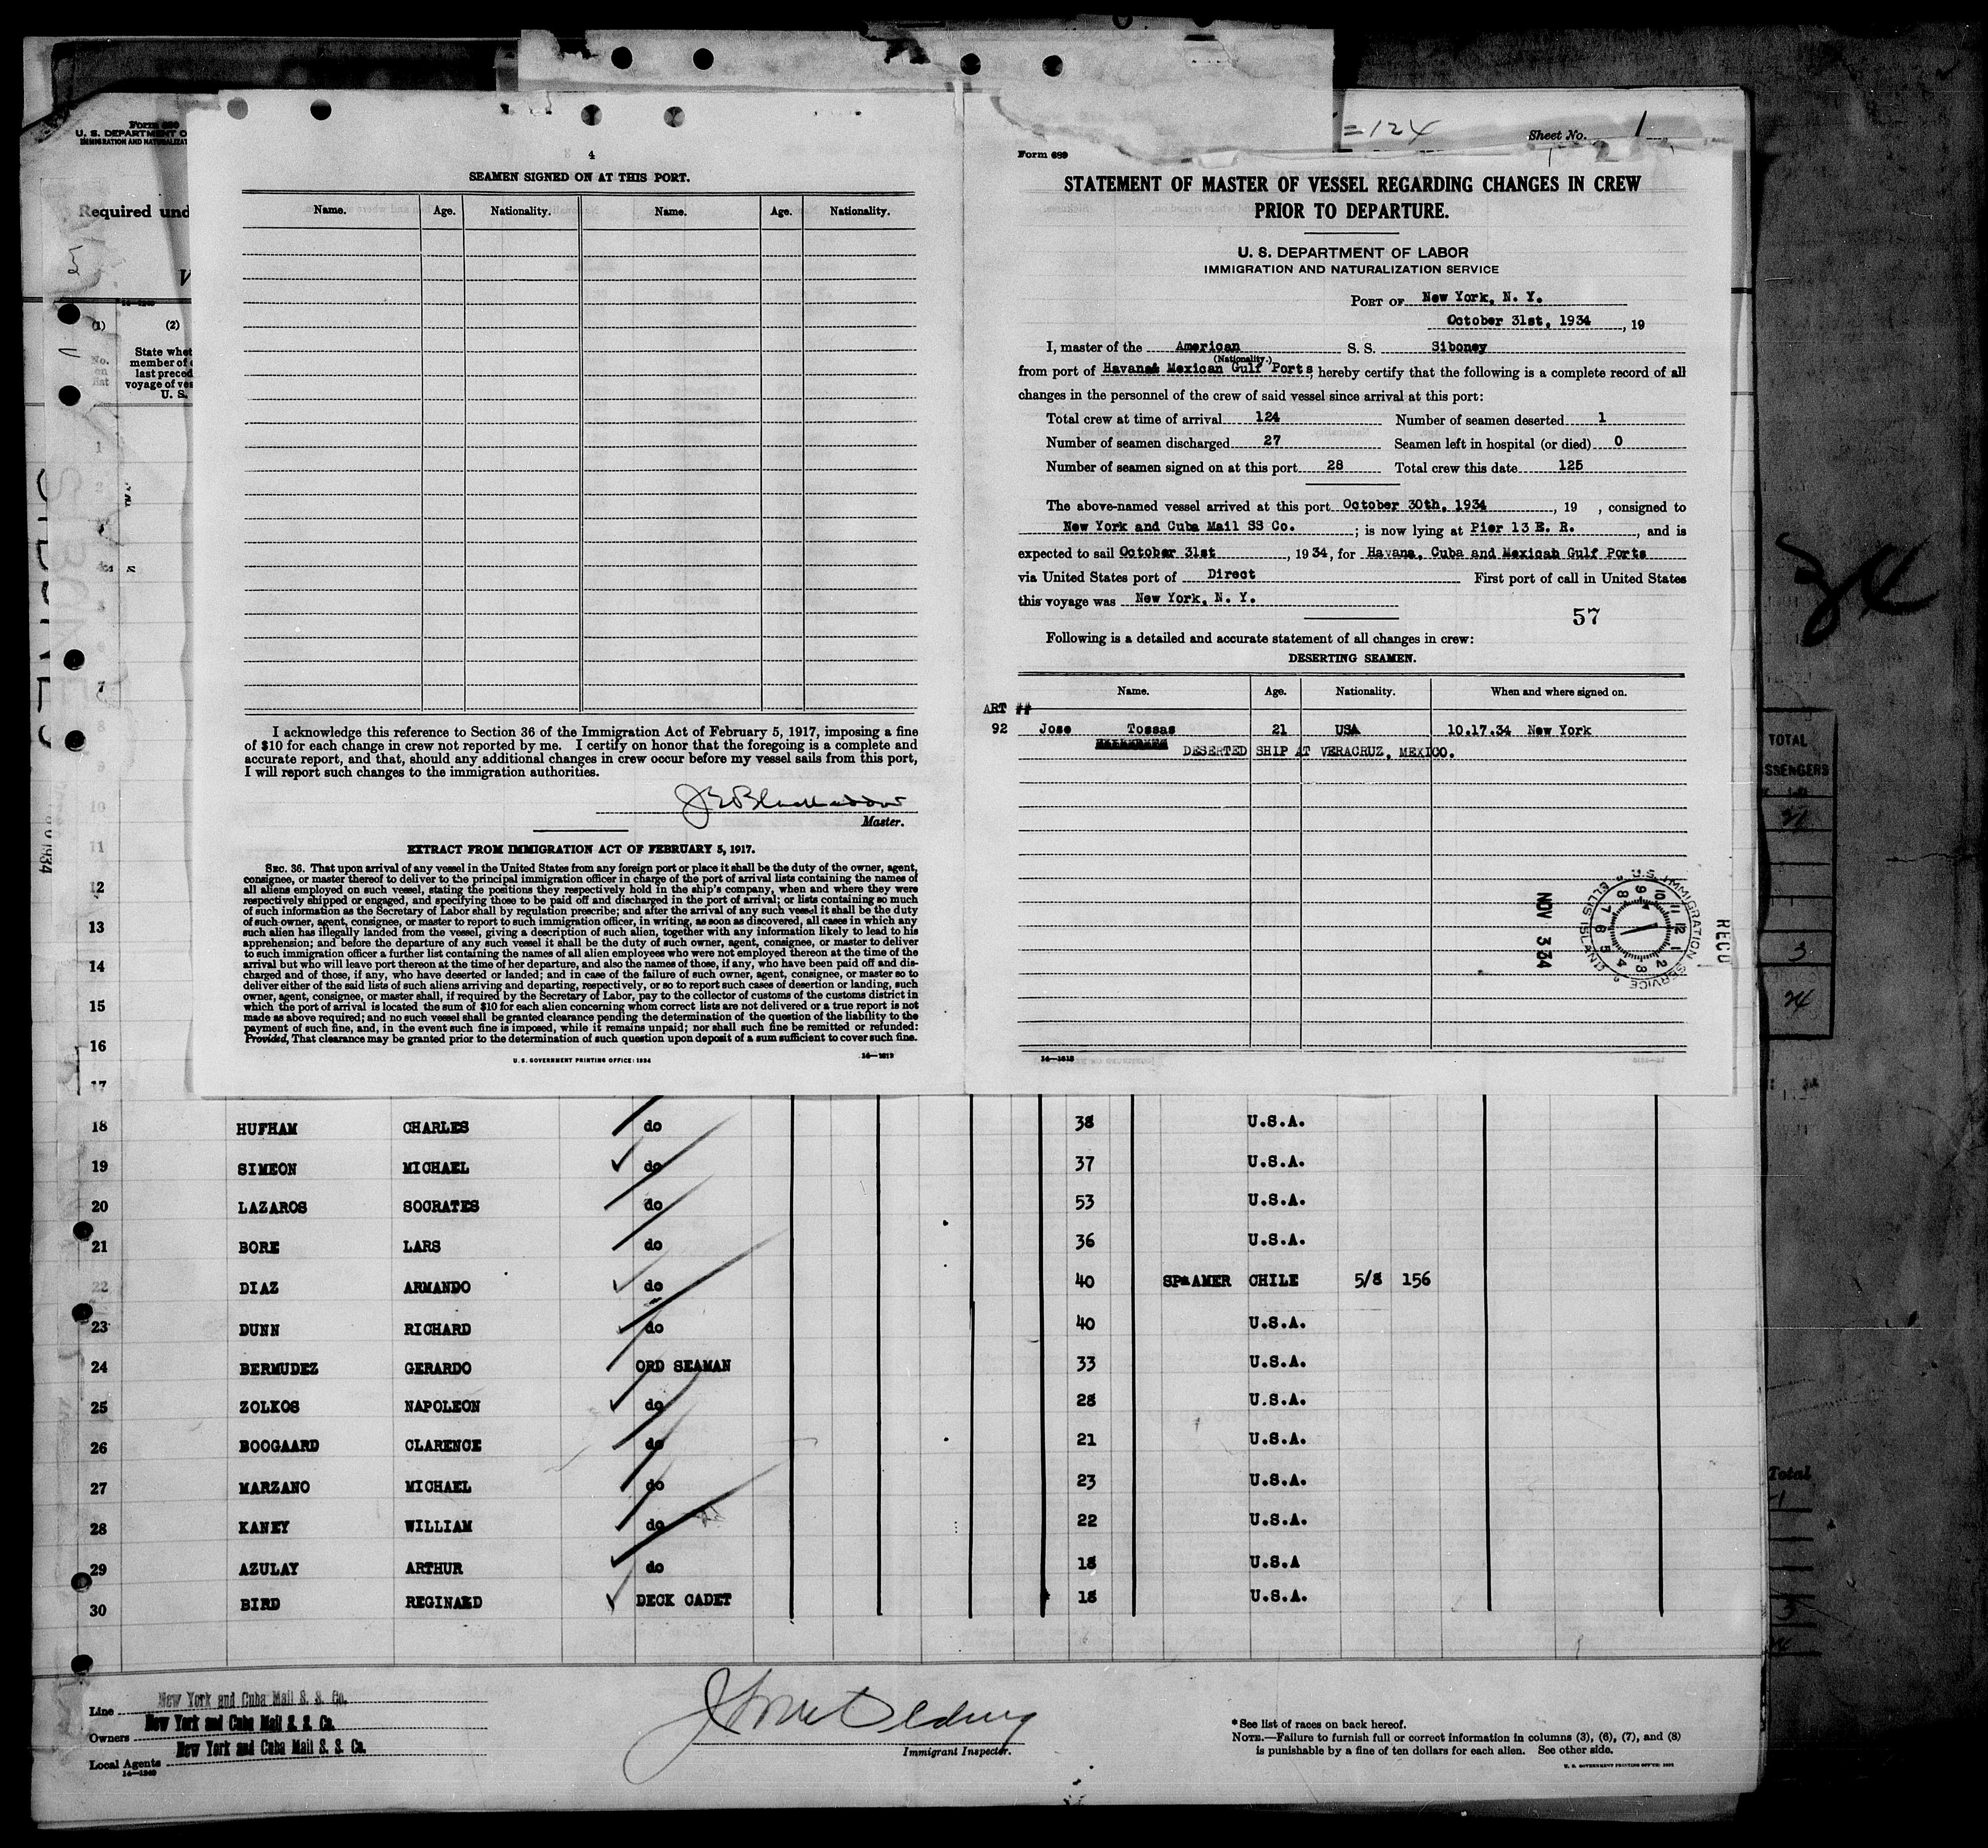 Form 689
U. S. DEPARTMENT O
IMMIGRATION AND NATURALIZAT
Required und
(1)
(2)
No. on list
State whet
member of
last preced
voyage of ves
U. S.
=124
Sheet No. 1
4
SEAMEN SIGNED ON AT THIS PORT.
Name. Age. Nationality. Name. Age. Nationality.
I acknowledge this reference to Section 36 of the Immigration Act of February 5, 1917, imposing a fine
of $10 for each change in crew not reported by me. I certify on honor that the foregoing is a complete and
accurate report, and that, should any additional changes in crew occur before my vessel sails from this port,
I will report such changes to the immigration authorities.
Master.
EXTRACT FROM IMMIGRATION ACT OF FEBRUARY 5, 1917.
SEC. 36. That upon arrival of any vessel in the United States from any foreign port or place it shall be the duty of the owner, agent,
consignee, or master thereof to deliver to the principal immigration officer in charge of the port of arrival lists containing the names of
all aliens employed on such vessel, stating the positions they respectively hold in the ship's company, when and where they were
respectively shipped or engaged, and specifying those to be paid off and discharged in the port of arrival; or lists containing so much
of such information as the Secretary of Labor shall by regulation prescribe; and after the arrival of any such vessel it shall be the duty
of such owner, agent, consignee, or master to report to such immigration officer, in writing, as soon as discovered, all cases in which any
such alien has illegally landed from the vessel, giving a description of such alien, together with any information likely to lead to his
apprehension; and before the departure of any such vessel it shall be the duty of such owner, agent, consignee, or master to deliver
to such immigration officer a further list containing the names of all alien employees who were not employed thereon at the time of the
arrival but who will leave port thereon at the time of her departure, and also the names of those, if any, who have been paid off and dis-
charged and of those, if any, who have deserted or landed; and in case of the failure of such owner, agent, consignee, or master so to
deliver either of the said lists of such aliens arriving and departing, respectively, or so to report such cases of desertion or landing, such
owner, agent, consignee, or master shall, if required by the Secretary of Labor, pay to the collector of customs of the customs district in
which the port of arrival is located the sum of $10 for each alien concerning whom correct lists are not delivered or a true report is not
made as above required; and no such vessel shall be granted clearance pending the determination of the question of the liability to the
payment of such fine, and, in the event such fine is imposed, while it remains unpaid; nor shall such fine be remitted or refunded:
Provided, That clearance may be granted prior to the determination of such question upon deposit of a sum sufficient to cover such fine.
U. S. GOVERNMENT PRINTING OFFICE: 1934
14—1613
Form 689
STATEMENT OF MASTER OF VESSEL REGARDING CHANGES IN CREW
PRIOR TO DEPARTURE.
U. S. DEPARTMENT OF LABOR
IMMIGRATION AND NATURALIZATION SERVICE
PORT OF New York, N. Y.
October 31st, 1934, 19
I, master of the American S. S. Siboney
(Nationality.)
from port of Havana& Mexican Gulf Ports, hereby certify that the following is a complete record of all
changes in the personnel of the crew of said vessel since arrival at this port:
Total crew at time of arrival 124 Number of seamen deserted 1
Number of seamen discharged 27 Seamen left in hospital (or died) 0
Number of seamen signed on at this port 28 Total crew this date 125
The above-named vessel arrived at this port October 30th, 1934, 19 , consigned to
New York and Cuba Mail SS Co. ; is now lying at Pier 13 E. R. , and is
expected to sail October 31st , 1934, for Havana, Cuba and Mexican Gulf Ports
via United States port of Direct First port of call in United States
this voyage was New York, N. Y.
57
Following is a detailed and accurate statement of all changes in crew:
DESERTING SEAMEN.
Name. Age. Nationality. When and where signed on.
ART ##
92 Jose Tossas 21 USA 10.17.34 New York
DESERTED SHIP AT VERACRUZ, MEXICO.
REC'D
U.S. IMMIGRATION SERVICE
ELLIS ISLAND
NOV 3 34
14—1613
34
TOTAL
SSENGERS
3
24
Total
1
2
7
8
9
10
11
12
13
14
15
16
17
18 HUFHAM CHARLES do 38 U.S.A.
19 SIMEON MICHAEL do 37 U.S.A.
20 LAZAROS SOCRATES do 53 U.S.A.
21 BORE LARS do 36 U.S.A.
22 DIAZ ARMANDO do 40 SP&AMER CHILE 5/8 156
23 DUNN RICHARD do 40 U.S.A.
24 BERMUDEZ GERARDO ORD SEAMAN 33 U.S.A.
25 ZOLKOS NAPOLEON do 28 U.S.A.
26 BOOGAARD CLARENCE do 21 U.S.A.
27 MARZANO MICHAEL do 23 U.S.A.
28 KANEY WILLIAM do 22 U.S.A.
29 AZULAY ARTHUR do 18 U.S.A
30 BIRD REGINALD DECK CADET 18 U.S.A.
Line New York and Cuba Mail S. S. Co.
Owners New York and Cuba Mail S. S. Co.
Local Agents New York and Cuba Mail S. S. Co.
14—1240
Immigrant Inspector.
*See list of races on back hereof.
NOTE.—Failure to furnish full or correct information in columns (3), (6), (7), and (8)
is punishable by a fine of ten dollars for each alien. See other side.